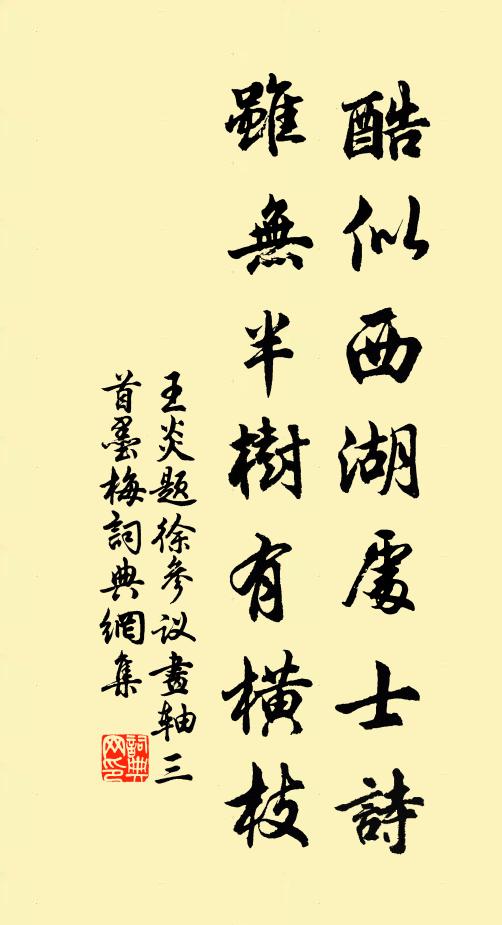 酷似西湖處士詩
雖無半樹有橫枝
王炎题徐參议畫轴三
首墨梅詞典網集
詞典
网印